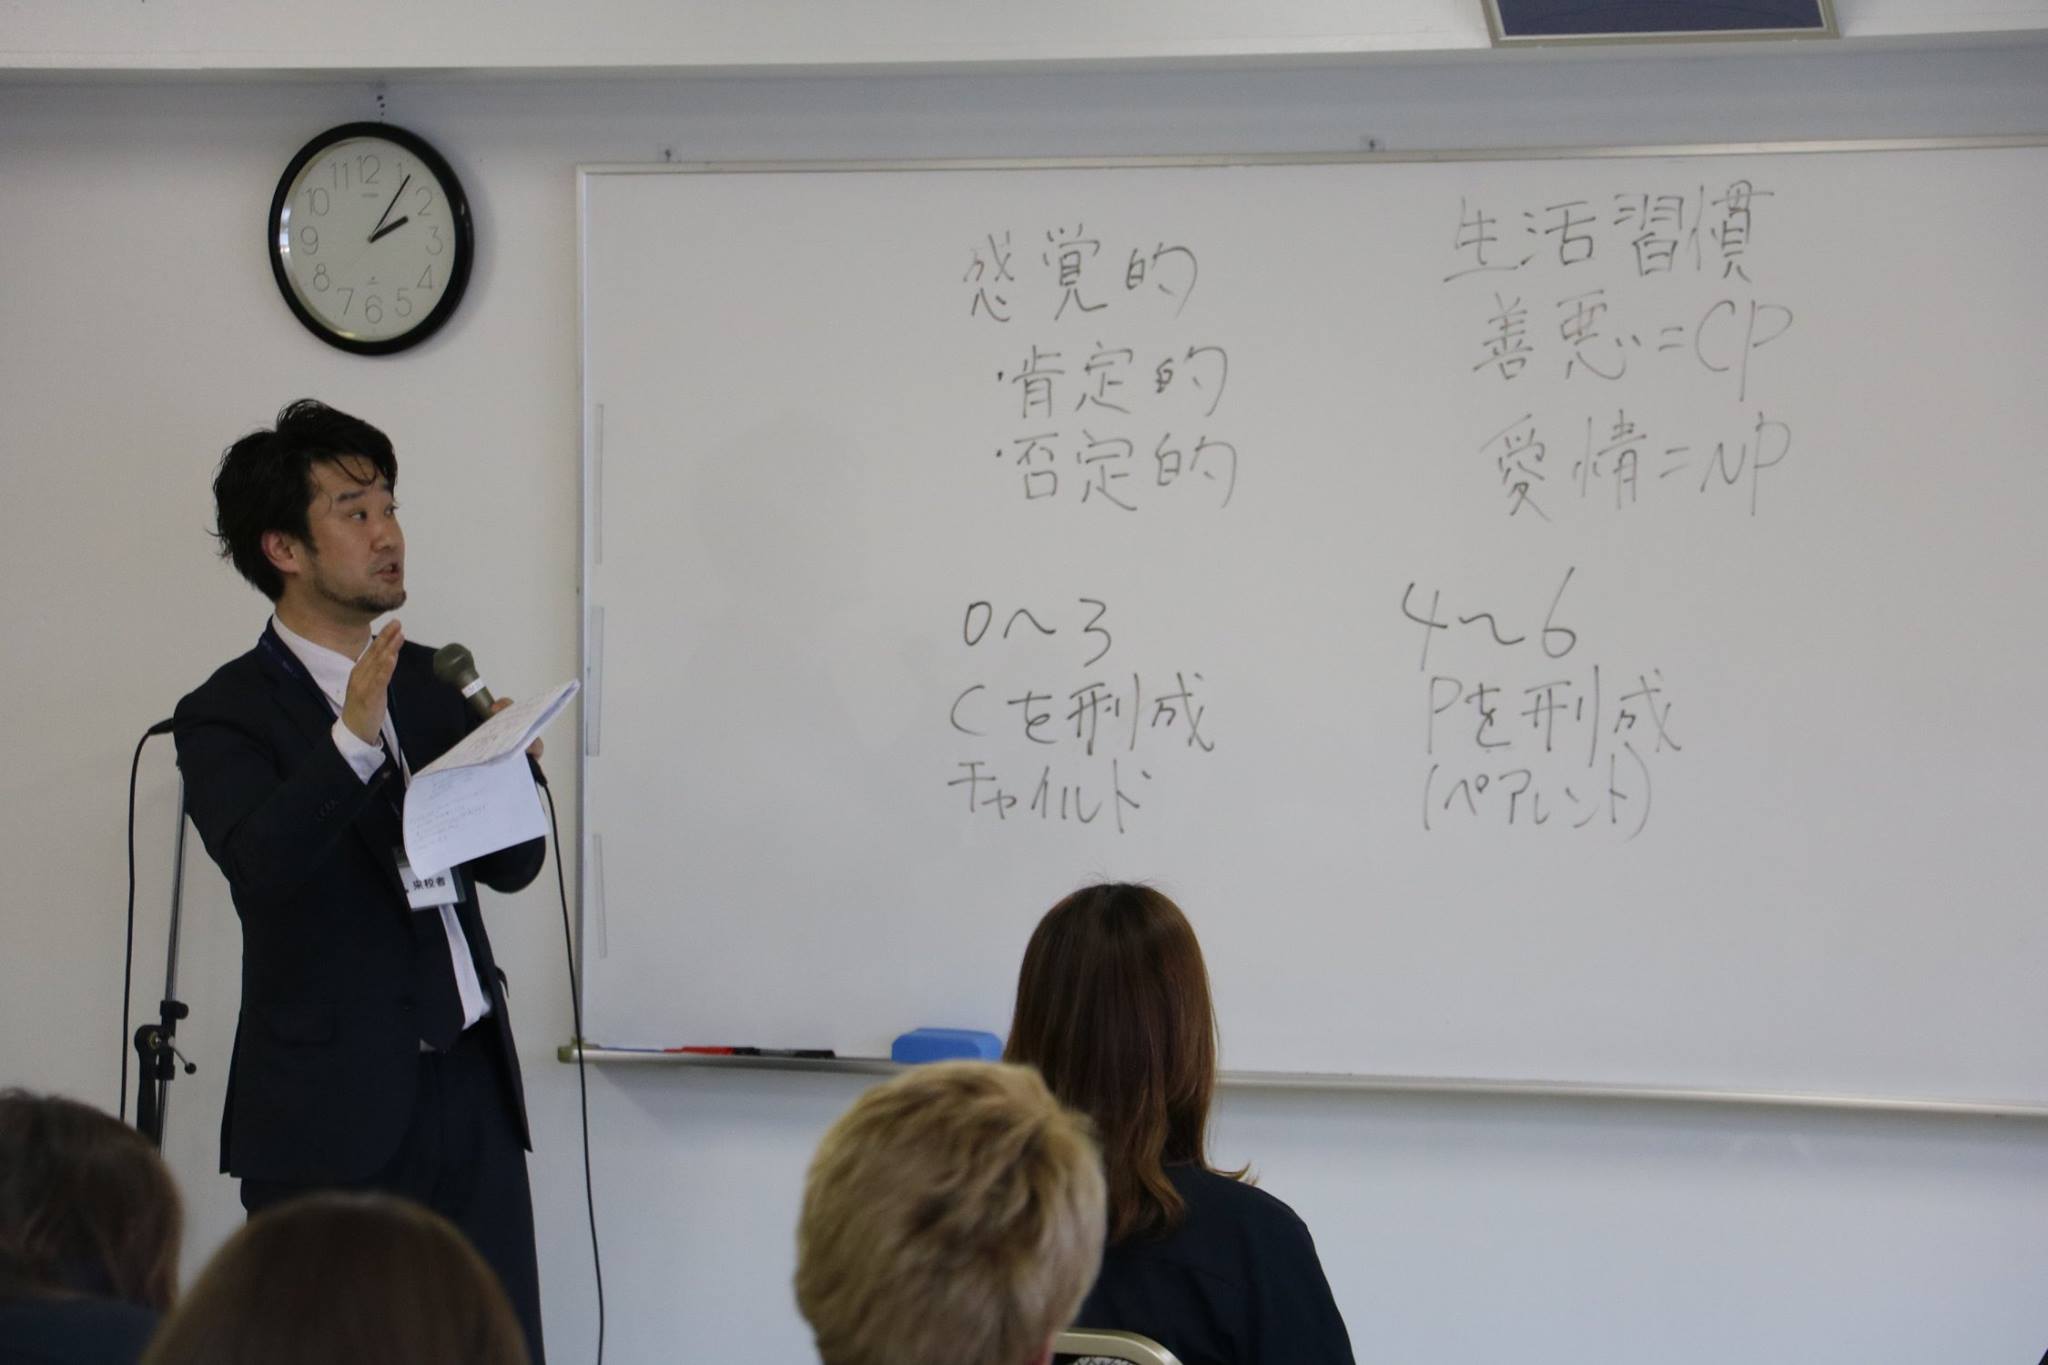 12
11
1
10
2
9
3
8
4
7
6
5
感覚的
・肯定的
・否定的
0〜3
Cを形成
チャイルド
生活習慣
善悪=CP
愛情=NP
4〜6
Pを形成
(ペアレント)
来校者